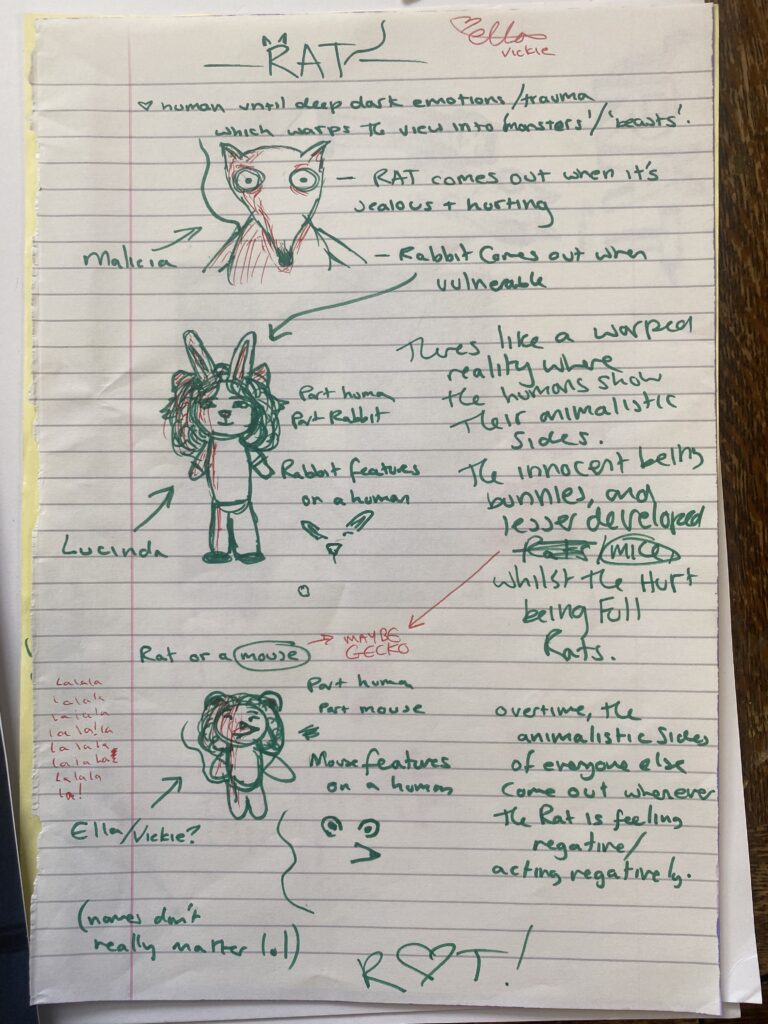 RAT
Ella
Vickie
♡ human until deep dark emotions/trauma
which warps the view into 'monsters'/'beasts'.
— RAT comes out when it's
Jealous + hurting
Malicia
— Rabbit comes out when
vulnerable
Theres like a warped
reality where
the humans show
their animalistic
sides.
The innocent being
bunnies, and
lesser developed
Rats/mice
whilst the Hurt
being Full
Rats.
Part huma
Part Rabbit
Rabbit features
on a human
Lucinda
Rat or a mouse
MAYBE
GECKO
Part human
Part mouse
Mouse features
on a human
Lalala
Lalala
Lalala
la la!la
La lala
lalaLa
Lalala
la!
Ella/Vickie?
overtime, the
animalistic sides
of everyone else
come out whenever
the Rat is feeling
negative/
acting negatively.
(names don't
really matter lol)
R♡T!